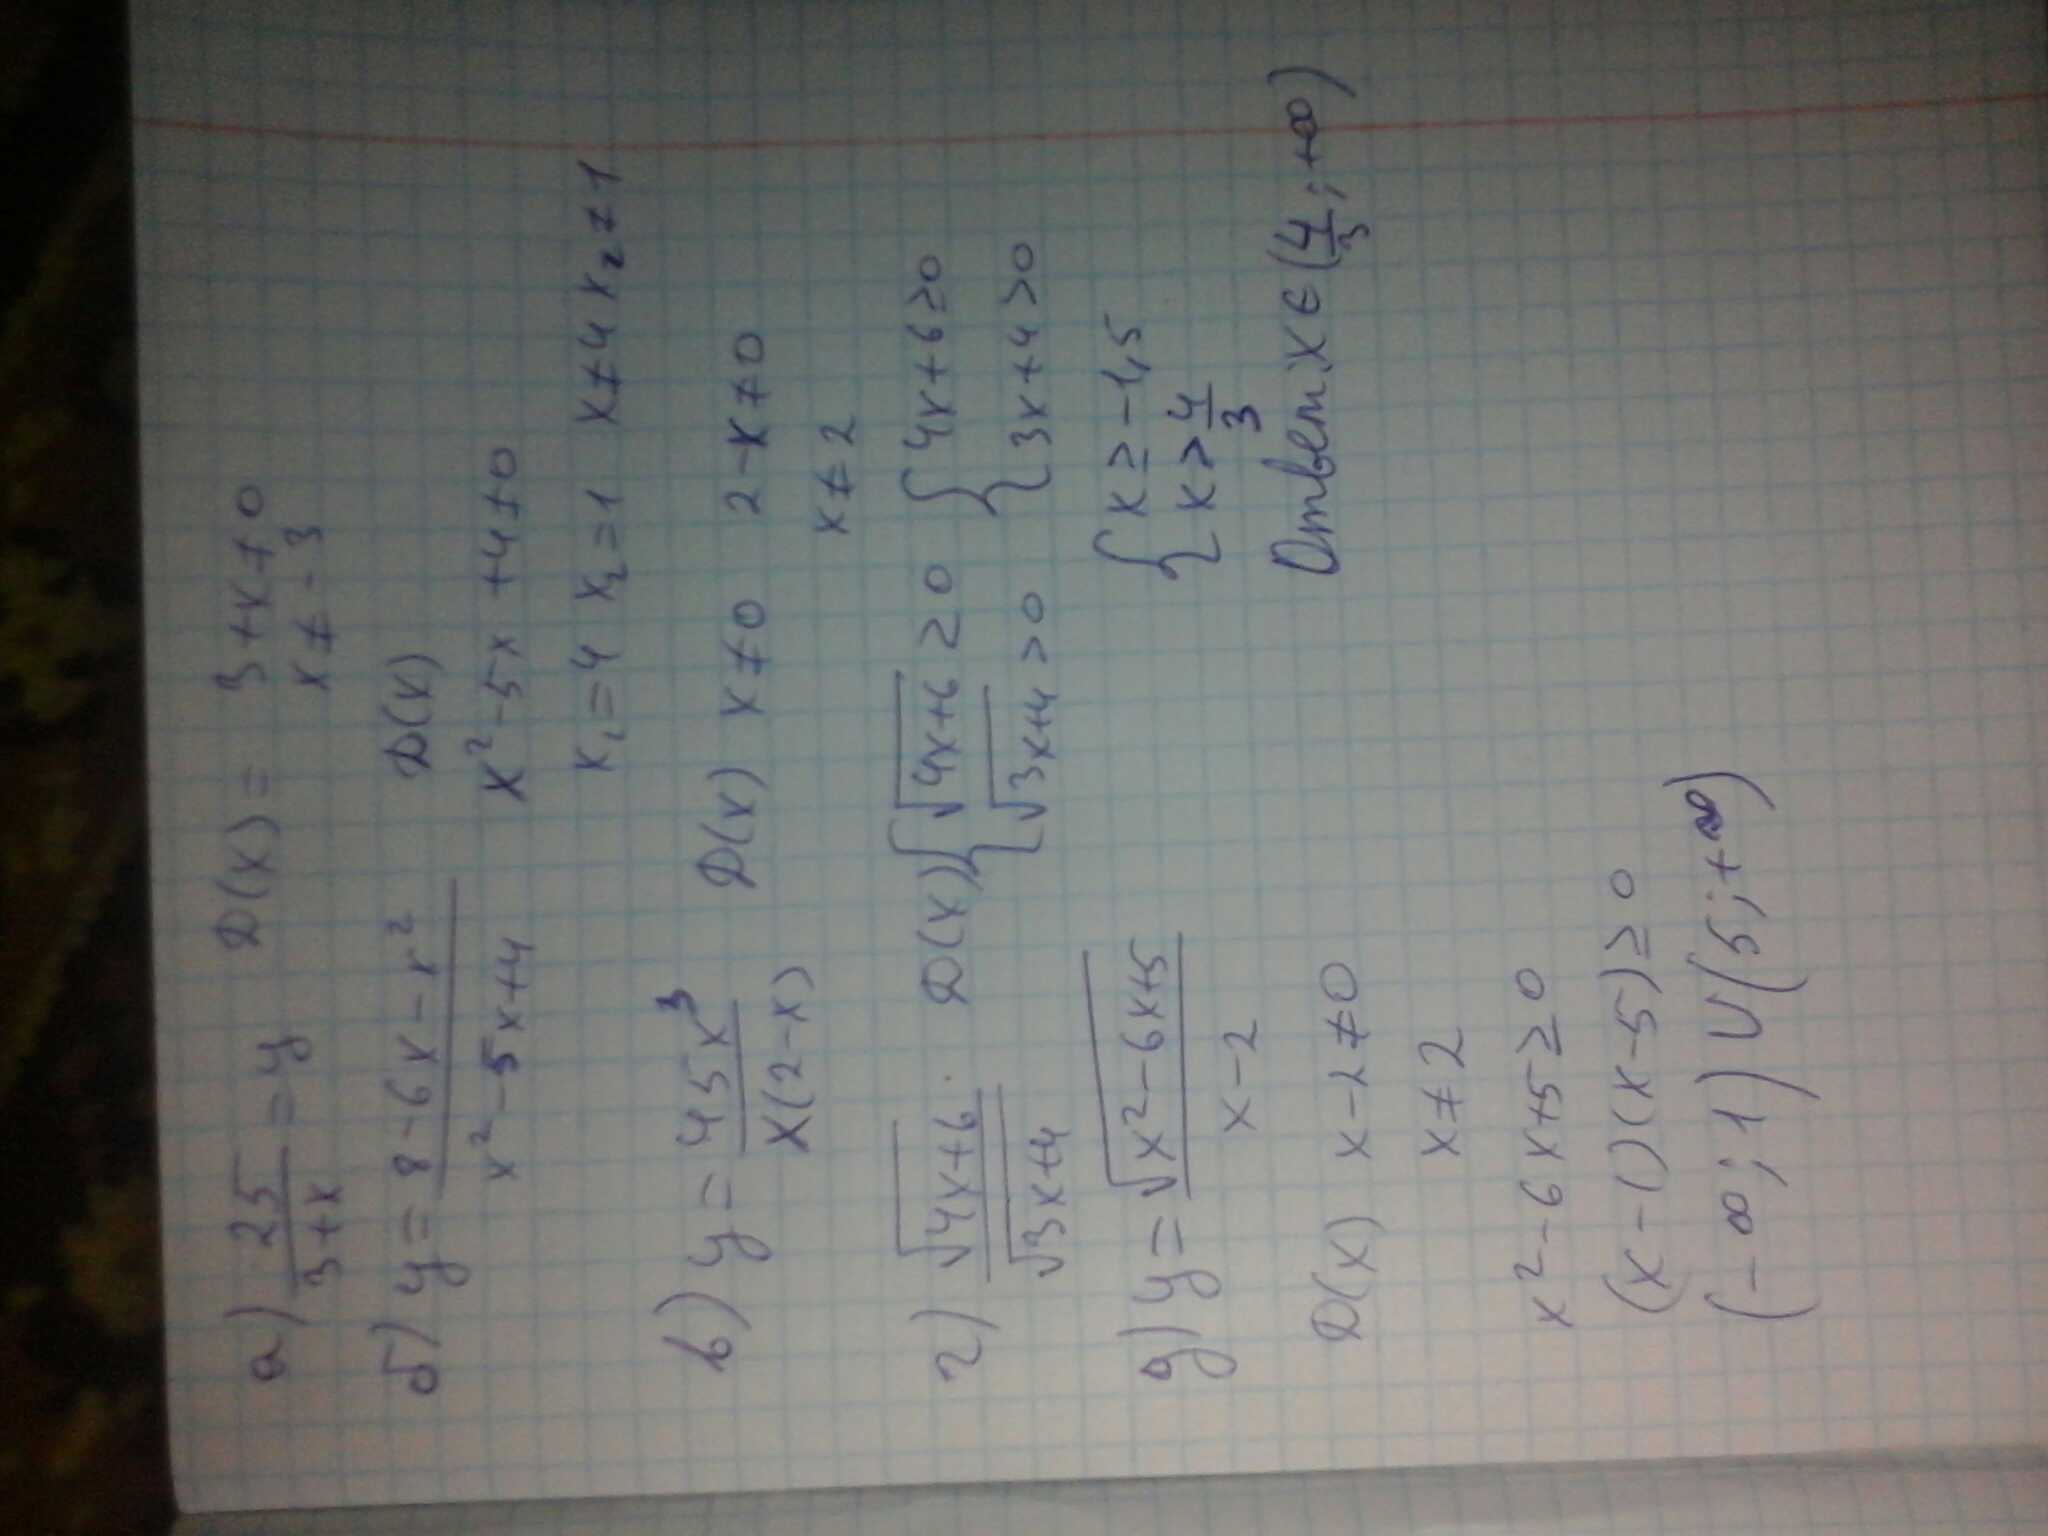 а) 25/(3+x) = y   D(x) = 3+x≠0
x≠-3
б) y = (8-6x-x²)/(x²-5x+4)   D(x)
x²-5x+4≠0
x₁=4 x₂=1 x≠4 x₂≠1
в) y = 45x³/(x(2-x))   D(x) x≠0 2-x≠0
x≠2
г) √(4x+6)/√(3x+4)   D(x) { √(4x+6) ≥0 { 4x+6≥0
√(3x+4) >0   3x+4>0
{ x ≥ -1,5
x > 4/3
Ответ: x ∈ (4/3; +∞)
д) y = √(x²-6x+5)/(x-2)
D(x) x-2≠0
x≠2
x²-6x+5≥0
(x-1)(x-5)≥0
(-∞; 1) ∪ (5; +∞)